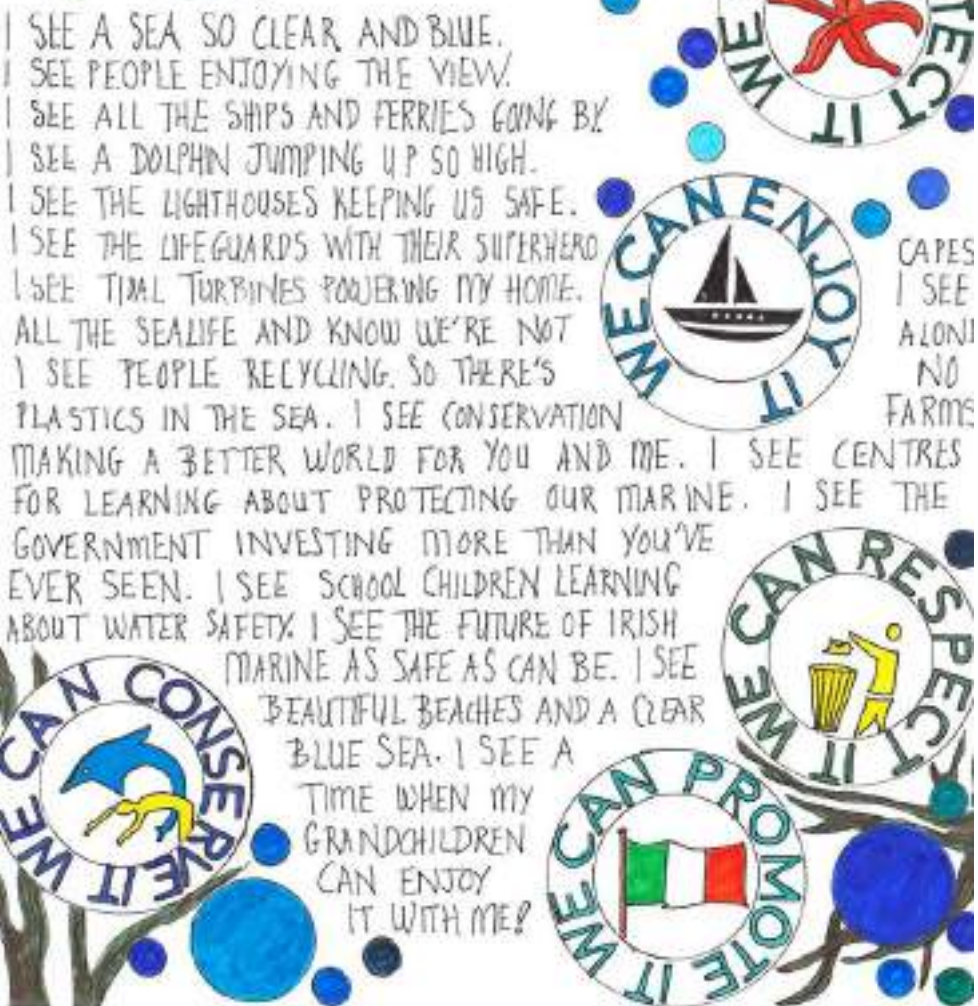 I SEE A SEA SO CLEAR AND BLUE.
I SEE PEOPLE ENJOYING THE VIEW.
I SEE ALL THE SHIPS AND FERRIES GOING BY.
I SEE A DOLPHIN JUMPING UP SO HIGH.
I SEE THE LIGHTHOUSES KEEPING US SAFE.
I SEE THE LIFEGUARDS WITH THEIR SUPERHERO CAPES
I SEE TIDAL TURBINES POWERING MY HOME. I SEE
ALL THE SEALIFE AND KNOW WE'RE NOT ALONE
I SEE PEOPLE RECYCLING. SO THERE'S NO
PLASTICS IN THE SEA. I SEE CONSERVATION FARMS
MAKING A BETTER WORLD FOR YOU AND ME. I SEE CENTRES
FOR LEARNING ABOUT PROTECTING OUR MARINE. I SEE THE
GOVERNMENT INVESTING MORE THAN YOU'VE
EVER SEEN. I SEE SCHOOL CHILDREN LEARNING
ABOUT WATER SAFETY. I SEE THE FUTURE OF IRISH
MARINE AS SAFE AS CAN BE. I SEE
BEAUTIFUL BEACHES AND A CLEAR
BLUE SEA. I SEE A
TIME WHEN MY
GRANDCHILDREN
CAN ENJOY
IT WITH ME!
TECT IT WE
WE CAN ENJOY IT
WE CAN RESPECT IT
WE CAN CONSERVE IT
WE CAN PROMOTE IT